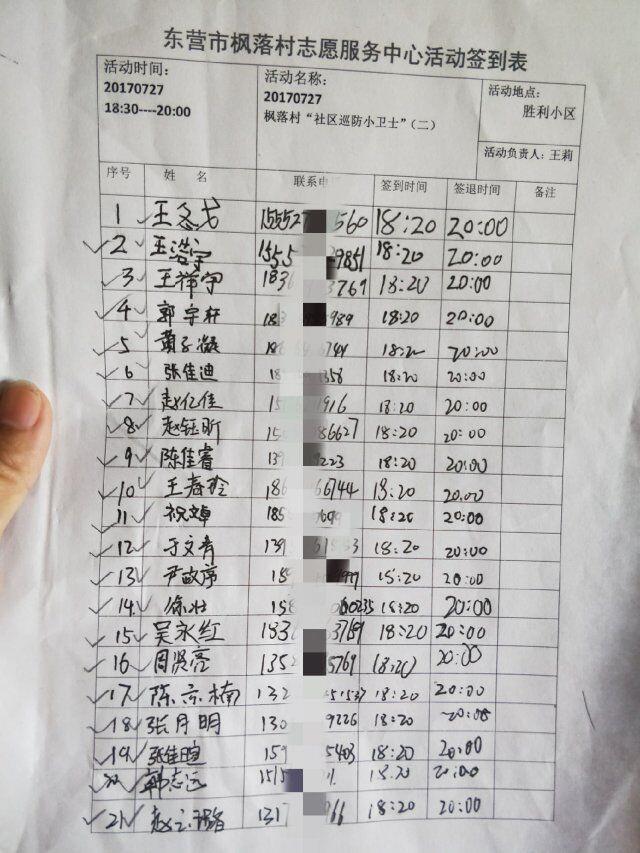 东营市枫落村志愿服务中心活动签到表
活动时间: 活动名称: 活动地点:
20170727 20170727 胜利小区
18:30----20:00 枫落村“社区巡防小卫士”(二) 活动负责人: 王莉
序号 姓 名 联系电 签到时间 签退时间 备注
1 王冬戈 15552 560 18:20 20:00
2 王浩宇 1555 9851 18:20 20:00
3 王梓宇 183 3769 18:20 20:00
4 郭宇轩 18 989 18:20 20:00
5 黄子凝 18 744 18:20 20:00
6 张佳迪 18 358 18:20 20:00
7 赵亿佳 15 1916 18:20 20:00
8 赵钰昕 15 86627 18:20 20:00
9 陈佳睿 139 9223 18:20 20:00
10 王春玲 186 66744 18:20 20:00
11 祝婥 185 18:20 20:00
12 于文青 139 18:20 20:00
13 尹政序 18 999 18:20 20:00
14 徐壮 15 0235 18:20 20:00
15 吴永红 183 3769 18:20 20:00
16 周贤亮 1352 5769 18:20 20:00
17 陈京楠 132 51537 18:20 20:00
18 张月明 130 9226 18:20 20:00
19 张佳暄 159 5403 18:20 20:00
20 韩志远 1515 18:20 20:00
21 赵 131 66 18:20 20:00